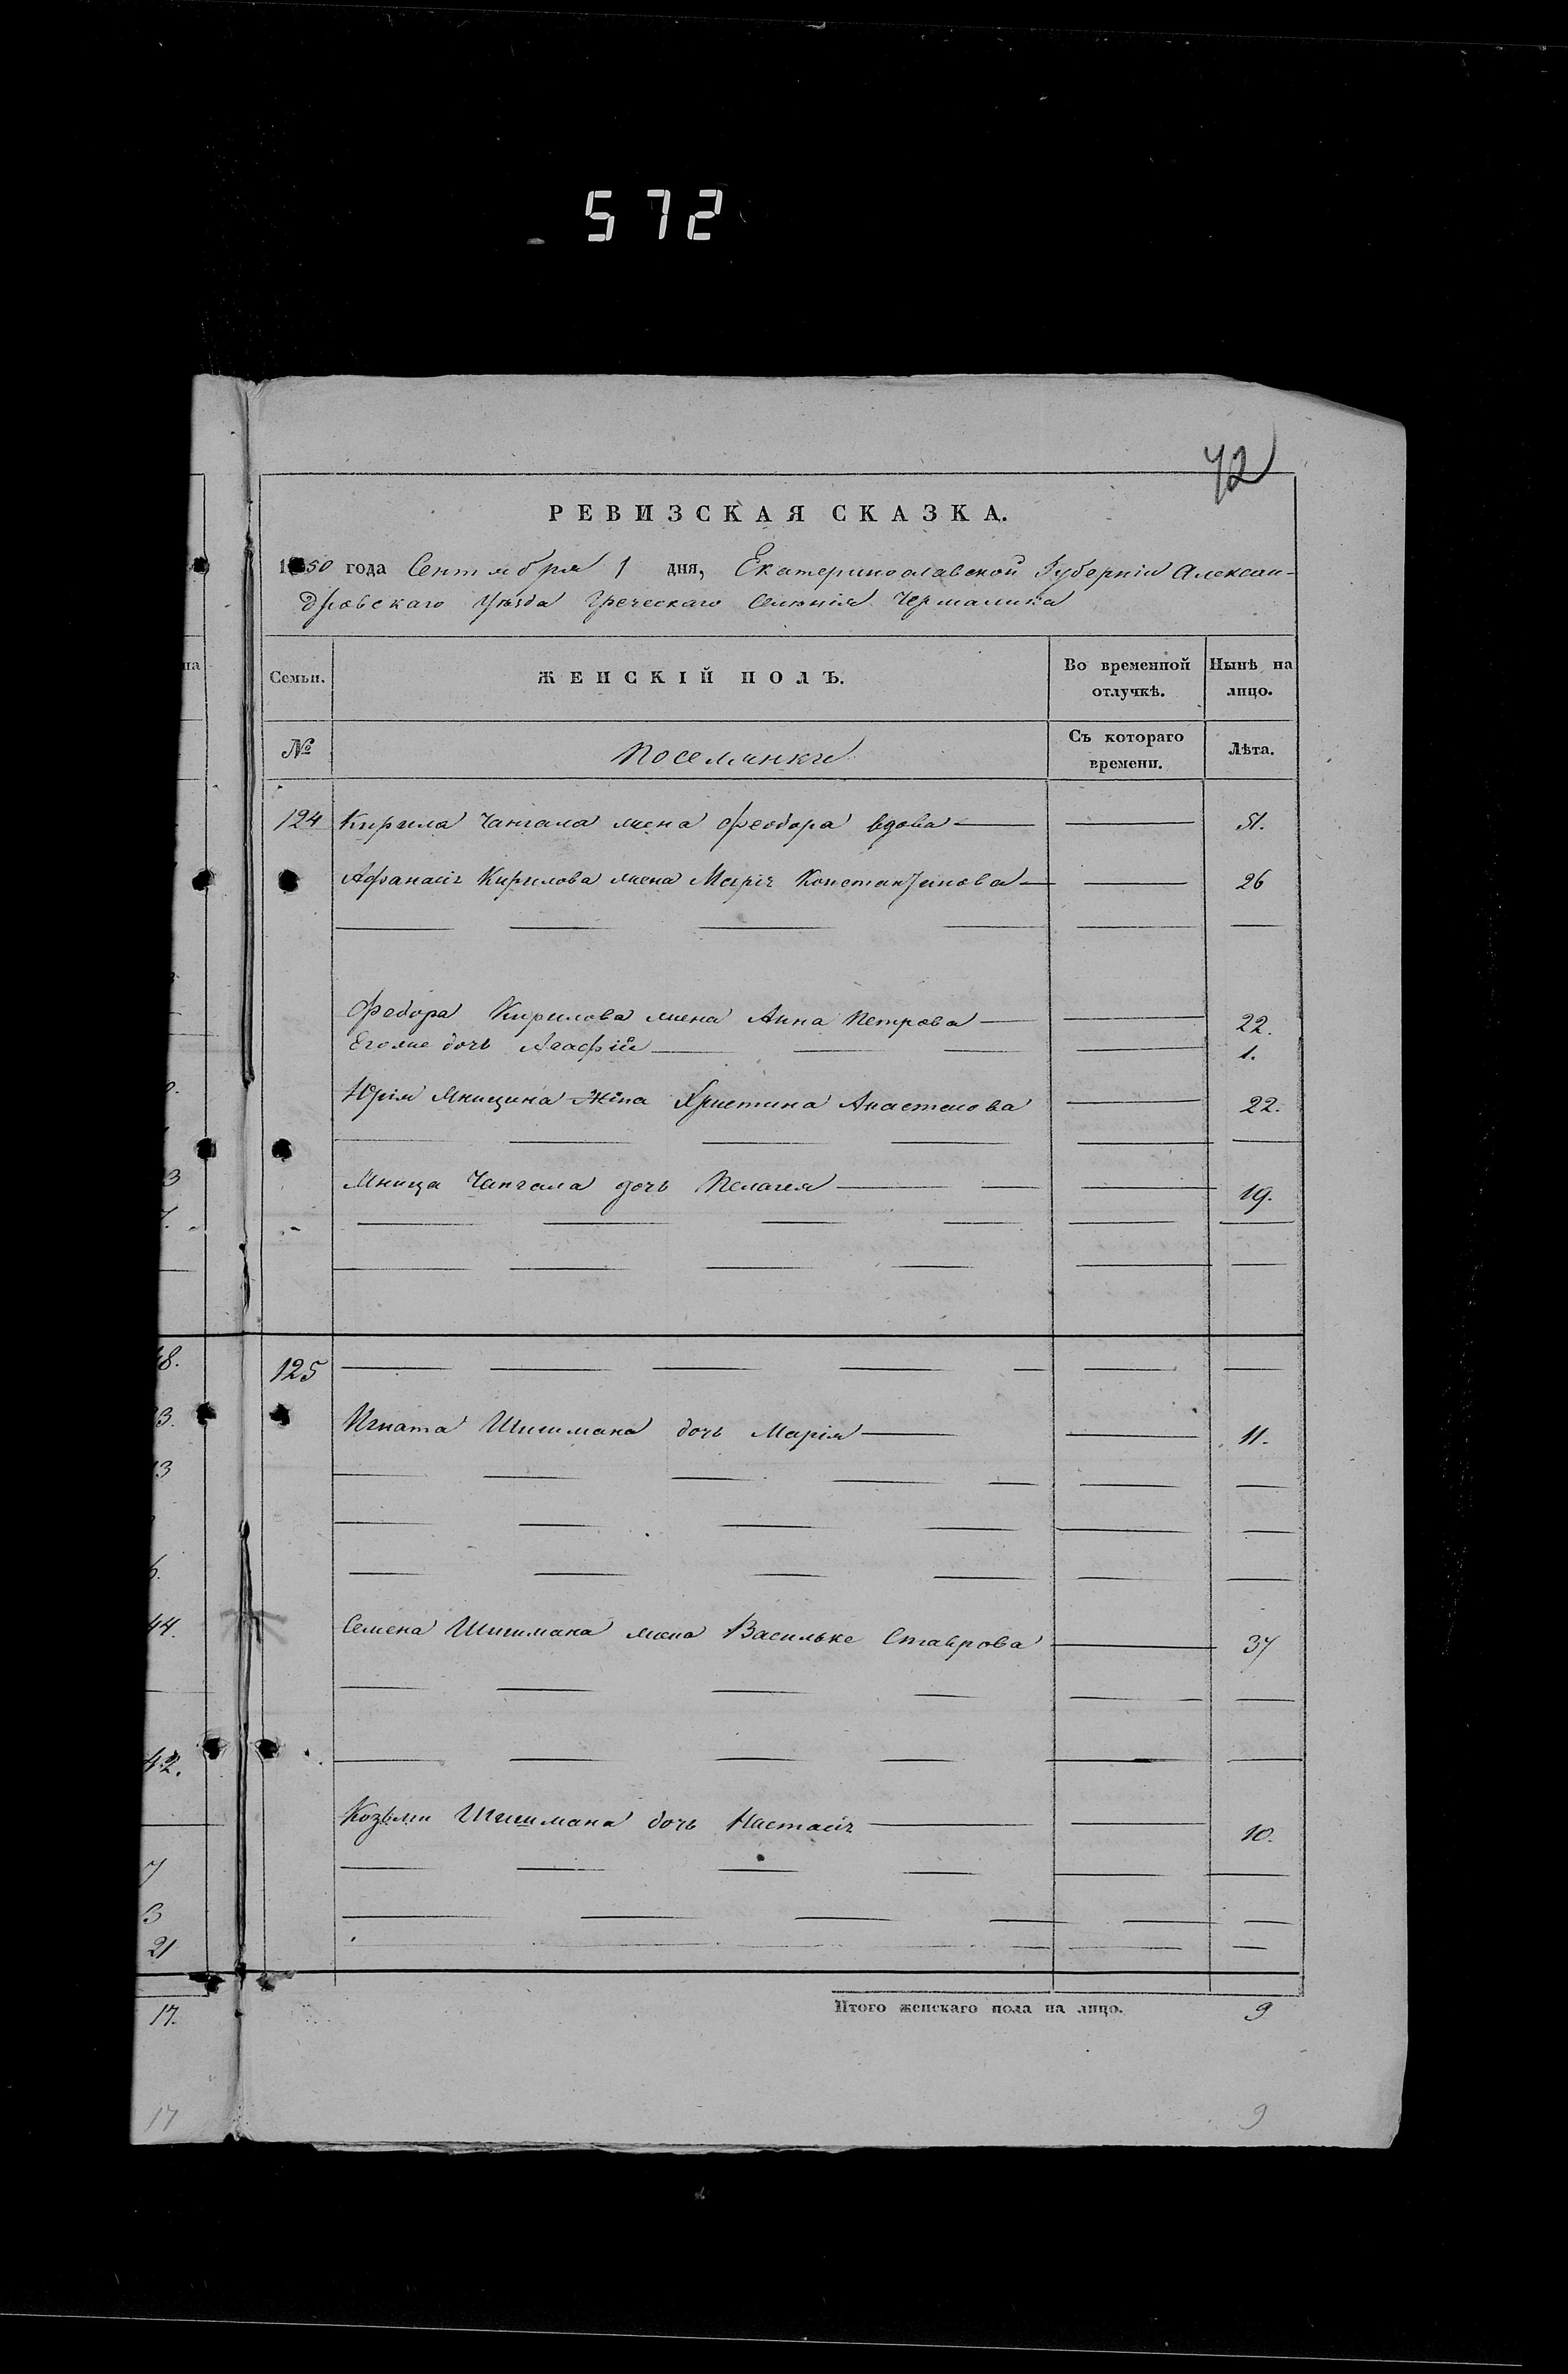 572
42
РЕВИЗСКАЯ СКАЗКА.
1850 года Сентября 1 дня, Екатеринославской Губерніи Алексан-
дровскаго Уѣзда Греческаго Селенія Чермалика
Семьи.
ЖЕНСКІЙ ПОЛЪ.
Во временной отлучкѣ.
Нынѣ на лицо.
№
Поселянки
Съ котораго времени.
Лѣта.
124 Кирила Чангала жена Феодора вдова 51.
Афанасія Кирилова жена Марія Константинова 26
Федора Кирилова жена Анна Петрова 22.
Егоже дочь Агафія 1.
Юрія Мницина жена Христина Анастасова 22.
Мница Чангала дочь Пелагея 19.
125
Игната Шишмана дочь Марія 11.
Семена Шишмана жена Василькe Ставрова 37
Козьми Шишмана дочь Настасія 10.
Итого женскаго пола на лицо. 9
9
48.
44.
42.
7
3
21
17.
17